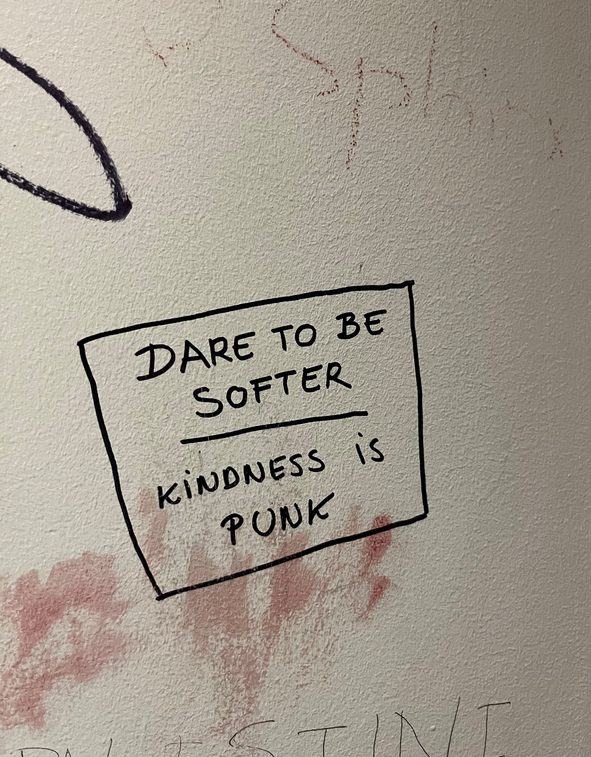 Sphinx
DARE TO BE
SOFTER
KiNDNESS iS
PUNK